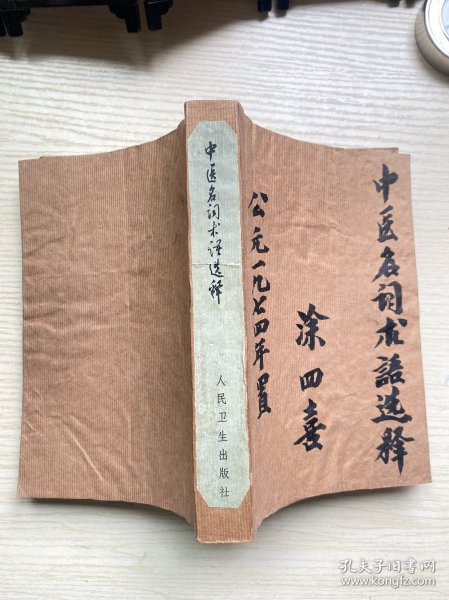 中医名词术語选释
涂四喜
公元一九七四年置
中医名词术语选释
人民卫生出版社
孔夫子旧书网
www.kongfz.com